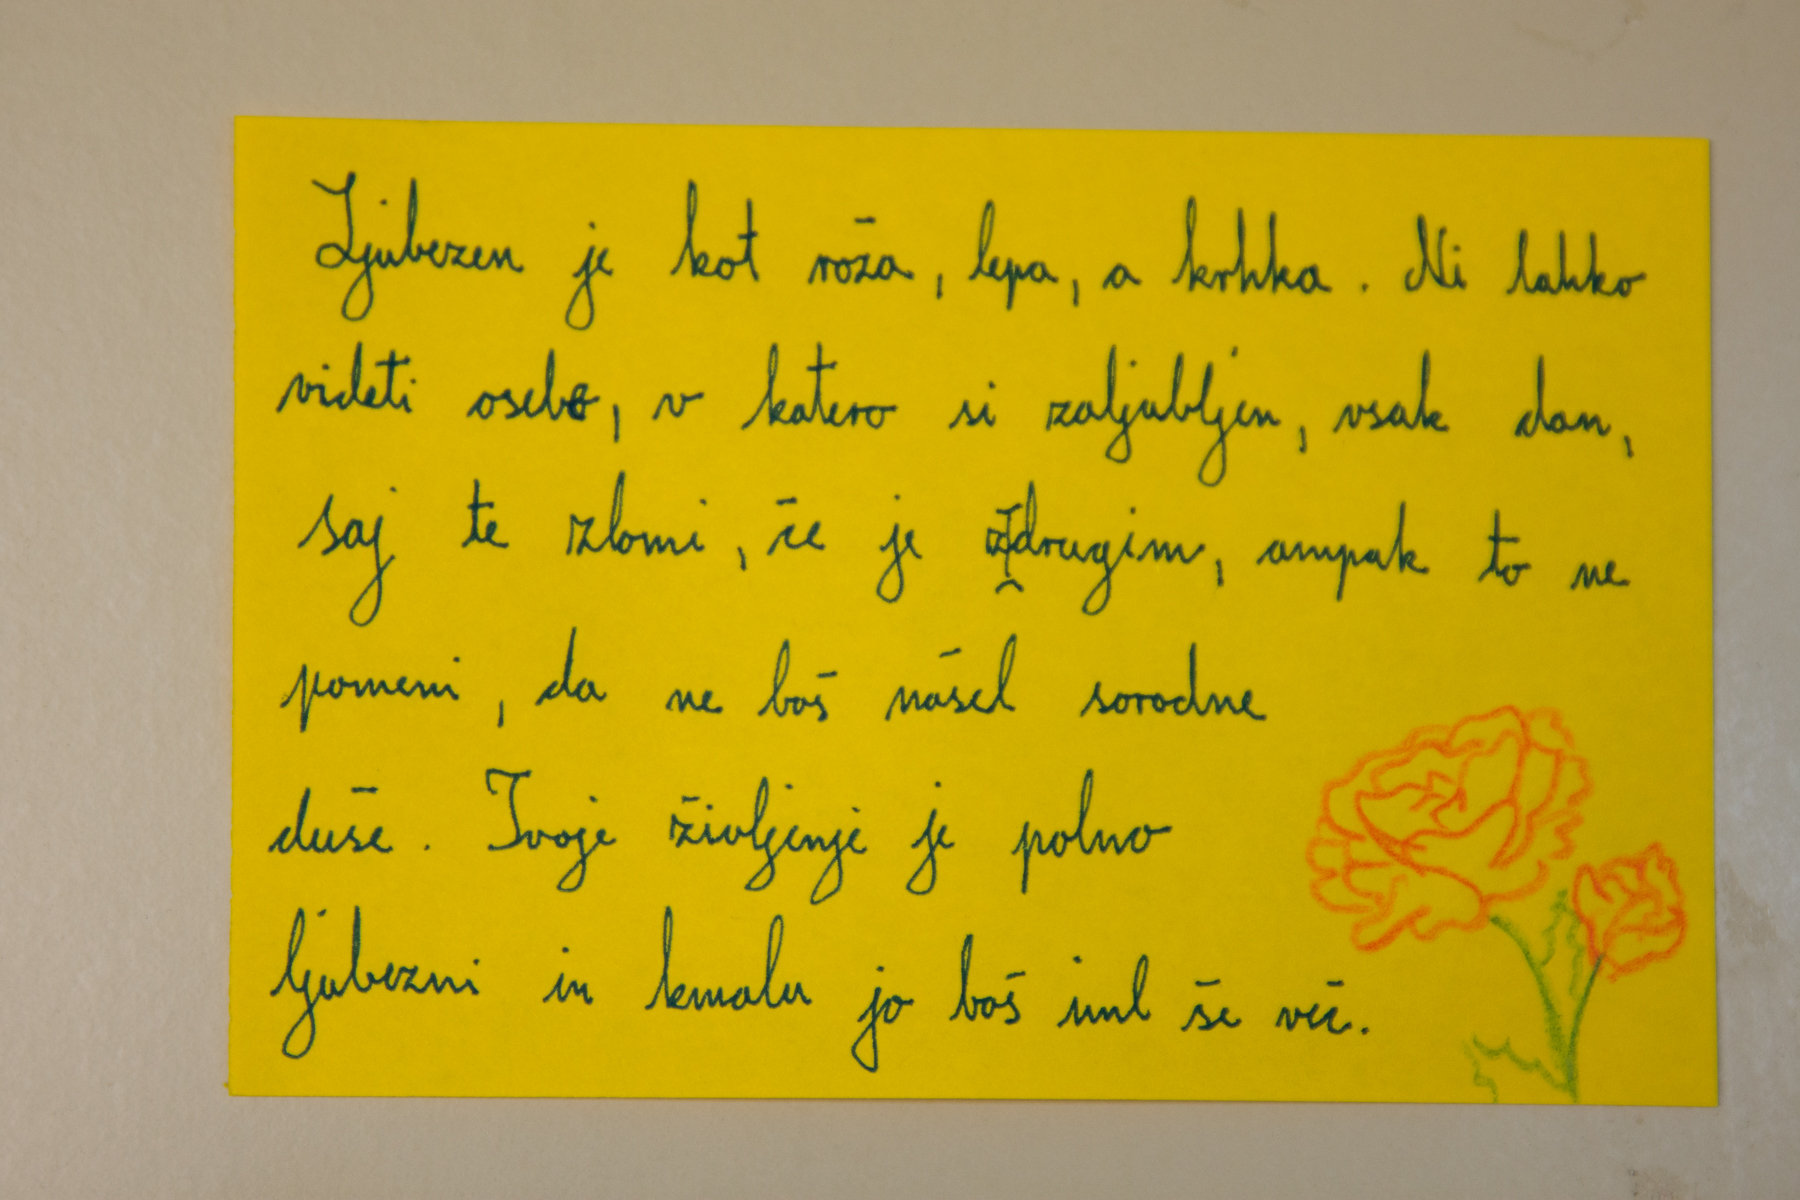 Ljubezen je kot roža, lepa, a krhka. Ni lahko
videti osebo, v katero si zaljubljen, vsak dan,
saj te zlomi, če je z drugim, ampak to ne
pomeni, da ne boš našel sorodne
duše. Tvoje življenje je polno
ljubezni in kmalu jo boš imel še več.